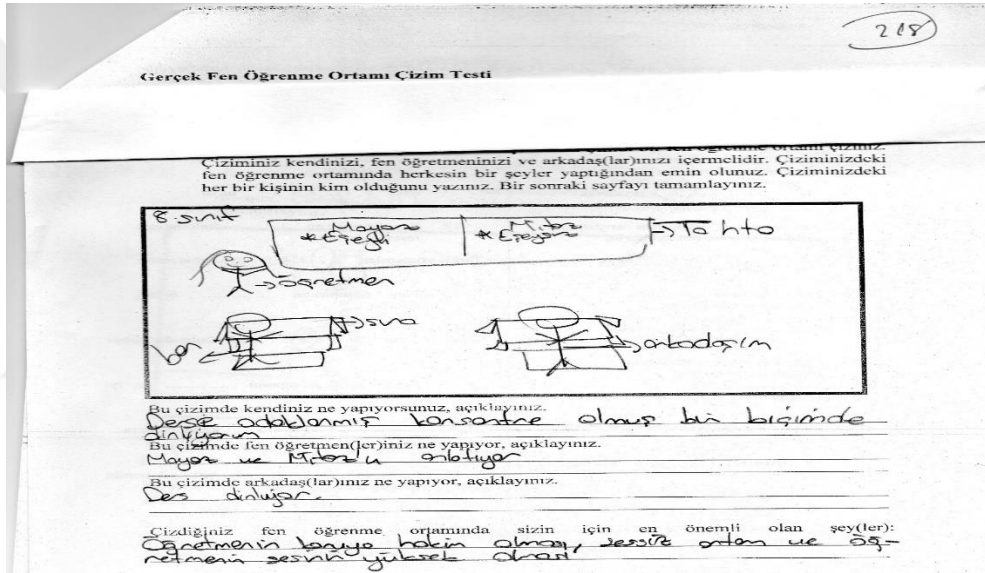 218
Gerçek Fen Öğrenme Ortamı Çizim Testi
Çiziminiz kendinizi, fen öğretmeninizi ve arkadaş(lar)ınızı içermelidir. Çiziminizdeki
fen öğrenme ortamında herkesin bir şeyler yaptığından emin olunuz. Çiziminizdeki
her bir kişinin kim olduğunu yazınız. Bir sonraki sayfayı tamamlayınız.
8. sınıf
Mayoz Mitoz
*Eşeyli *Eşeysiz → Tahta
→ öğretmen
ben → sıra → arkadaşım
Bu çizimde kendiniz ne yapıyorsunuz, açıklayınız.
Derse odaklanmış konsantre olmuş bir biçimde
dinliyorum
Bu çizimde fen öğretmen(ler)iniz ne yapıyor, açıklayınız.
Mayoz ve Mitoz'u anlatıyor
Bu çizimde arkadaş(lar)ınız ne yapıyor, açıklayınız.
Ders dinliyor.
Çizdiğiniz fen öğrenme ortamında sizin için en önemli olan şey(ler):
Öğretmenin konuya hakim olması, sessiz ortam ve öğ-
retmenin sesinin yüksek olması